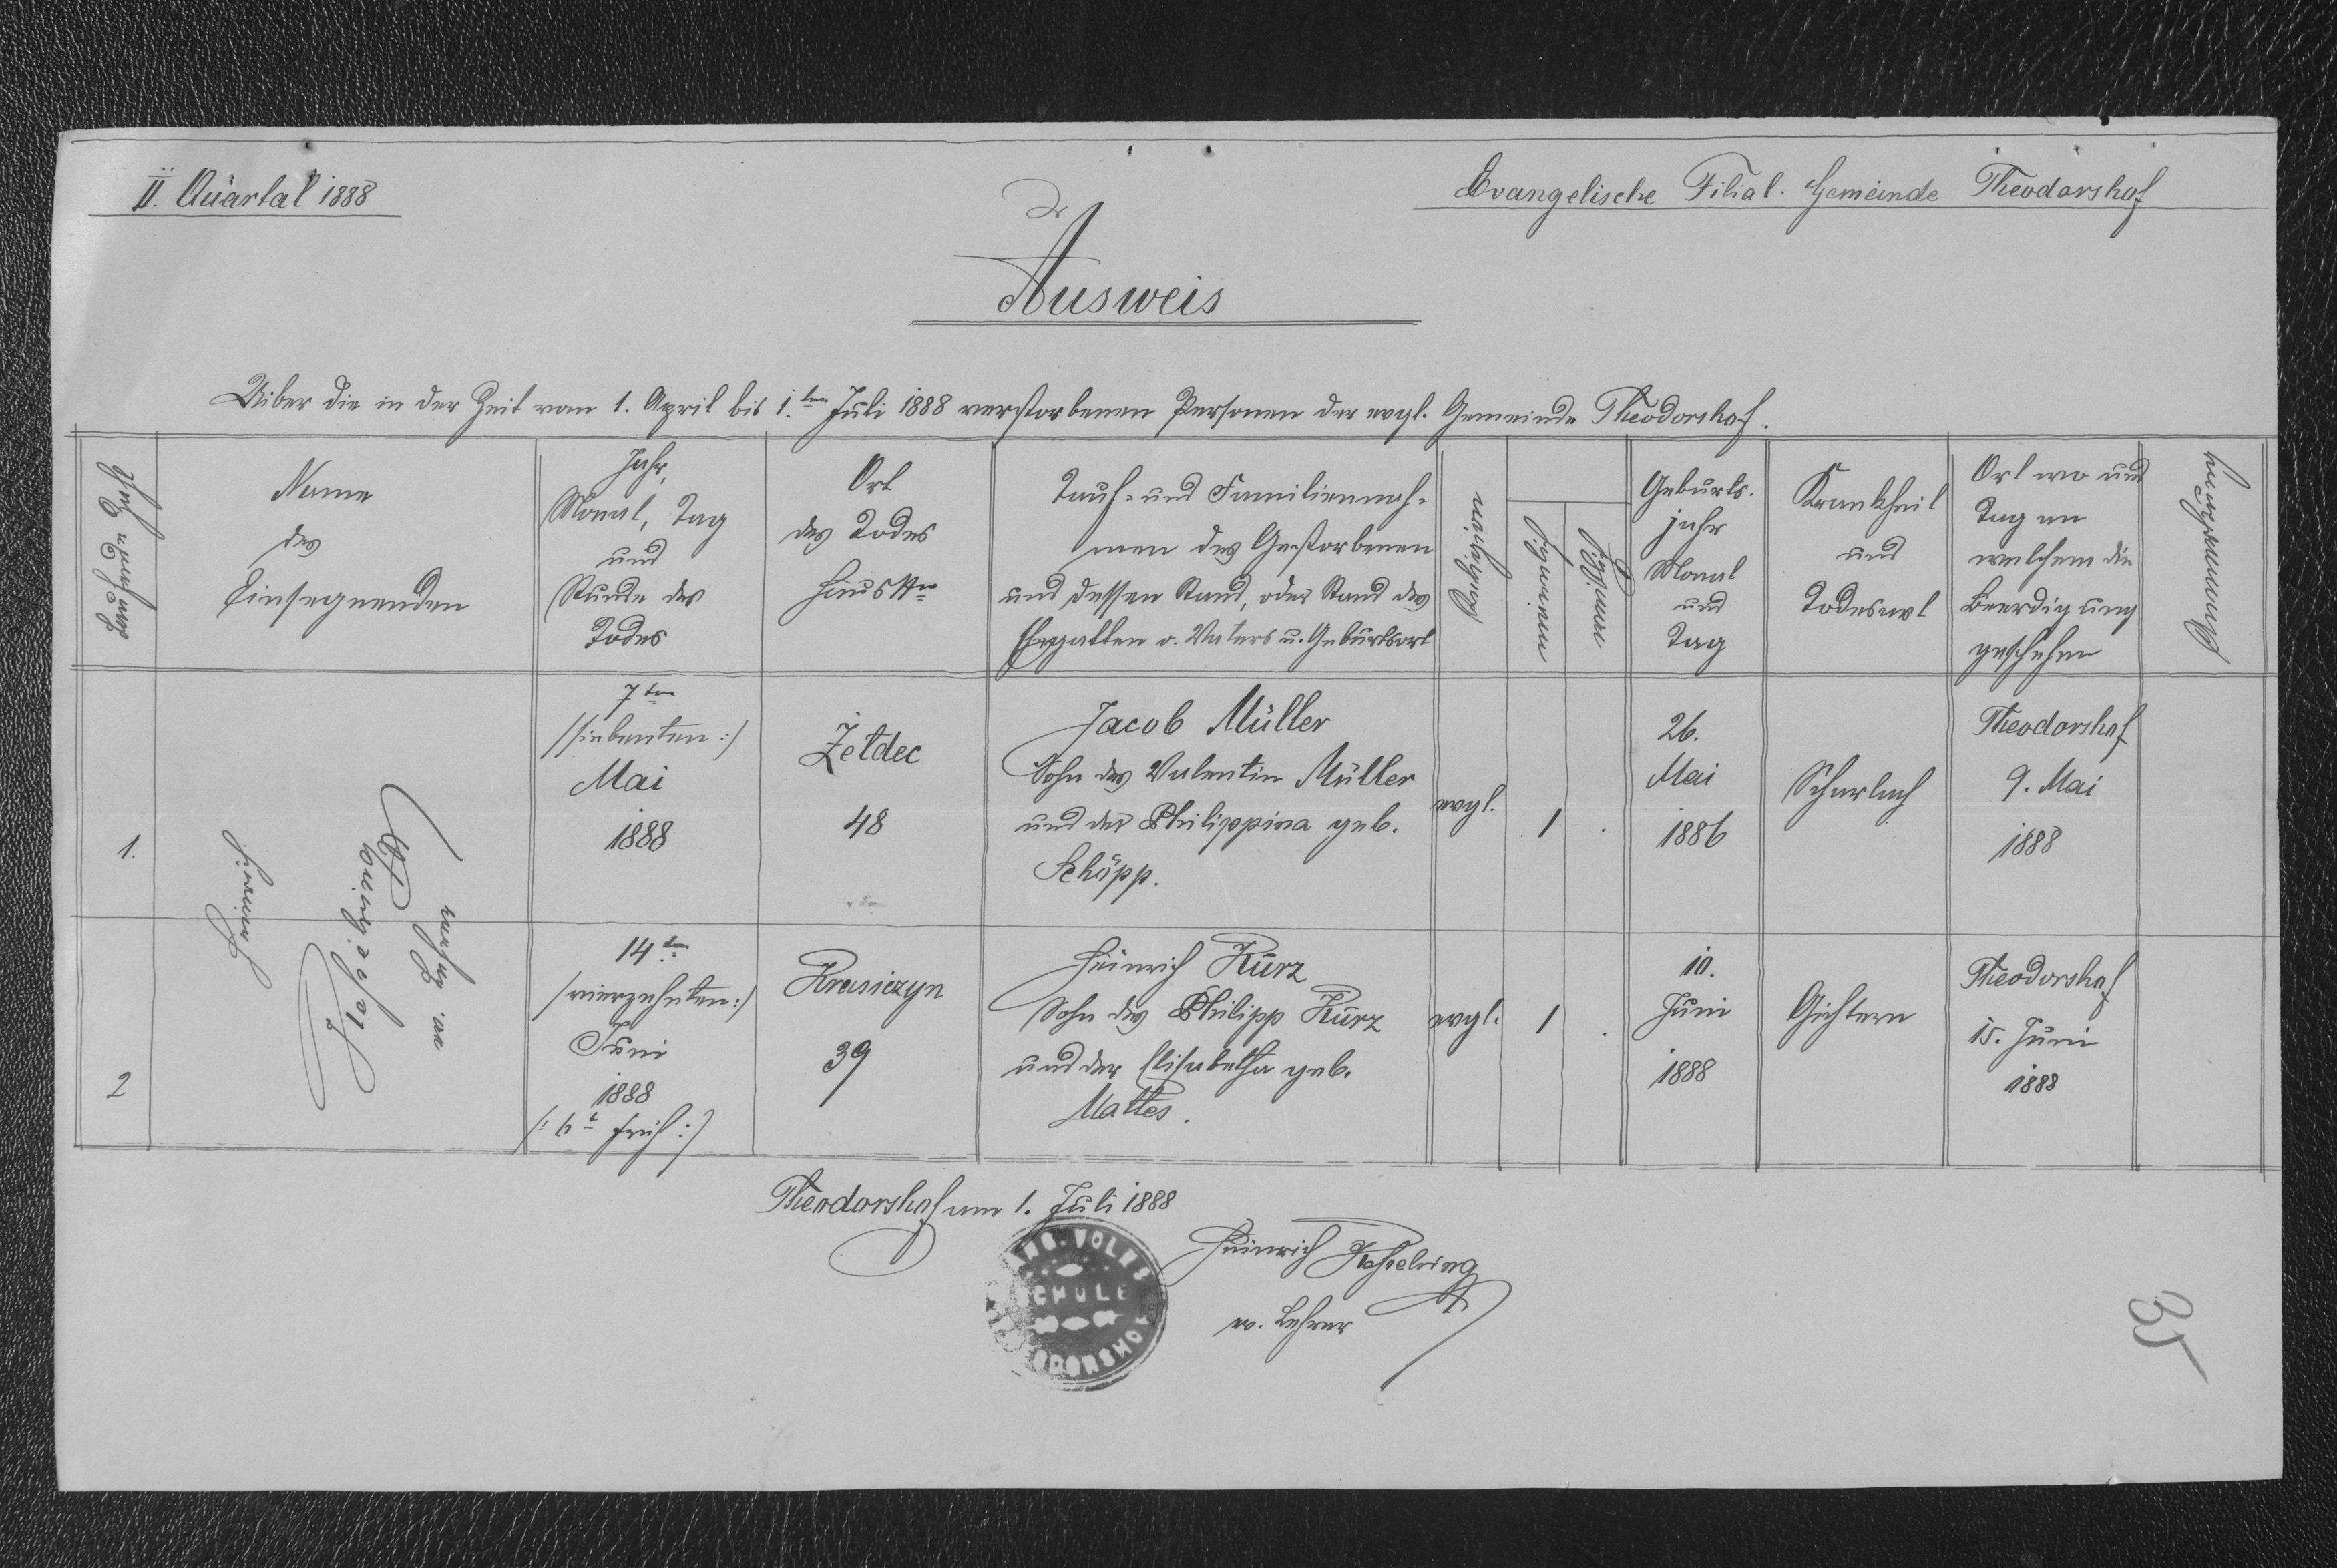 II. Quartal 1888
Evangelische Filial. Gemeinde Theodorshof
Ausweis
Uiber die in der Zeit vom 1. April bis 1.ten Juli 1888 verstorbenen Personen der evgl. Gemeinde Theodorshof.
Name
des
Einsegnenden
Jahr,
Monat, Tag
und
Stunde des
Todes
Ort
des Todes
Haus Nro
Tauf- und Familiennah-
men des Gestorbenen
und dessen Stand, oder Stand des
Ehegatten o. Vaters u. Geburtsort
Religion
männlich
weiblich
Geburts-
jahr
Monat
und
Tag
Krankheit
und
Todesart
Ort wo und
Tag an
welchem die
Beerdigung
geschehen
Anmerkung
1.
Heinrich
Kesselring
ev. Lehrer
7ten
/siebenten:/
Mai
1888
Żełdec
48
Jacob Müller
Sohn des Valentin Müller
und der Philippina geb.
Schöpp.
evgl.
1
.
26.
Mai
1886
Scharlach
Theodorshof
9. Mai
1888
2
14ten
/vierzehnten:/
Juni
1888
/: 6h früh :/
Krasiczyn
39
Heinrich Kurz
Sohn des Philipp Kurz
und der Elisabetha geb.
Mattes.
evgl.
1
.
10.
Juni
1888
Gichtern
Theodorshof
15. Juni
1888
Theodorshof am 1. Juli 1888
Heinrich Kesselring
ev. Lehrer
VOLKS
SCHULE
THEODORSHOF
35